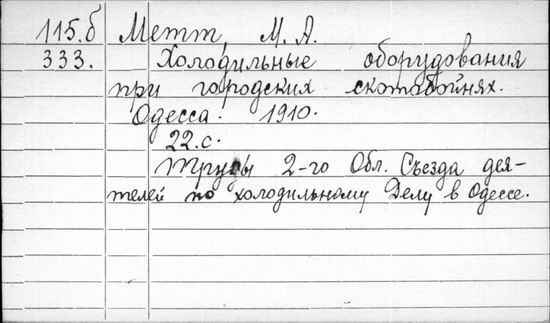 115.б Метт, М. А.
333. Холодильные оборудования
при городских скотобойнях.
Одесса. 1910.
22.с.
Труды 2-го Обл. Съезда дея-
телей по холодильному Делу в Одессе.